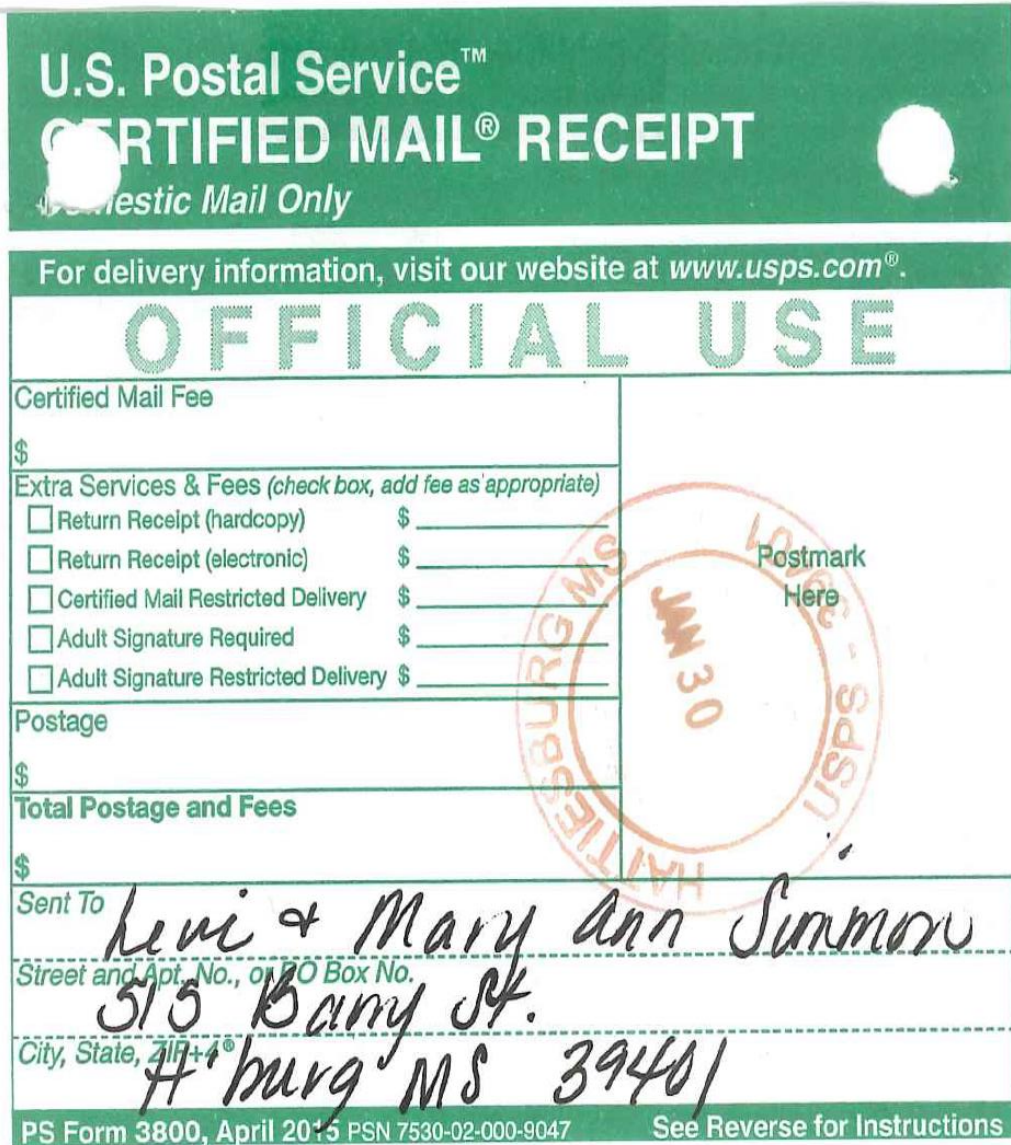 U.S. Postal Service™
CERTIFIED MAIL® RECEIPT
Domestic Mail Only
For delivery information, visit our website at www.usps.com®.
OFFICIAL USE
Certified Mail Fee
$
Extra Services & Fees (check box, add fee as appropriate)
Return Receipt (hardcopy) $
Return Receipt (electronic) $
Certified Mail Restricted Delivery $
Adult Signature Required $
Adult Signature Restricted Delivery $
Postage
$
Total Postage and Fees
$
Postmark
Here
HATTIESBURG MS 39401 - USPS
JAN 30
Sent To Levi & Mary Ann Simmons
Street and Apt. No., or PO Box No.
515 Barry St.
City, State, ZIP+4®
H'burg MS 39401
PS Form 3800, April 2015 PSN 7530-02-000-9047 See Reverse for Instructions